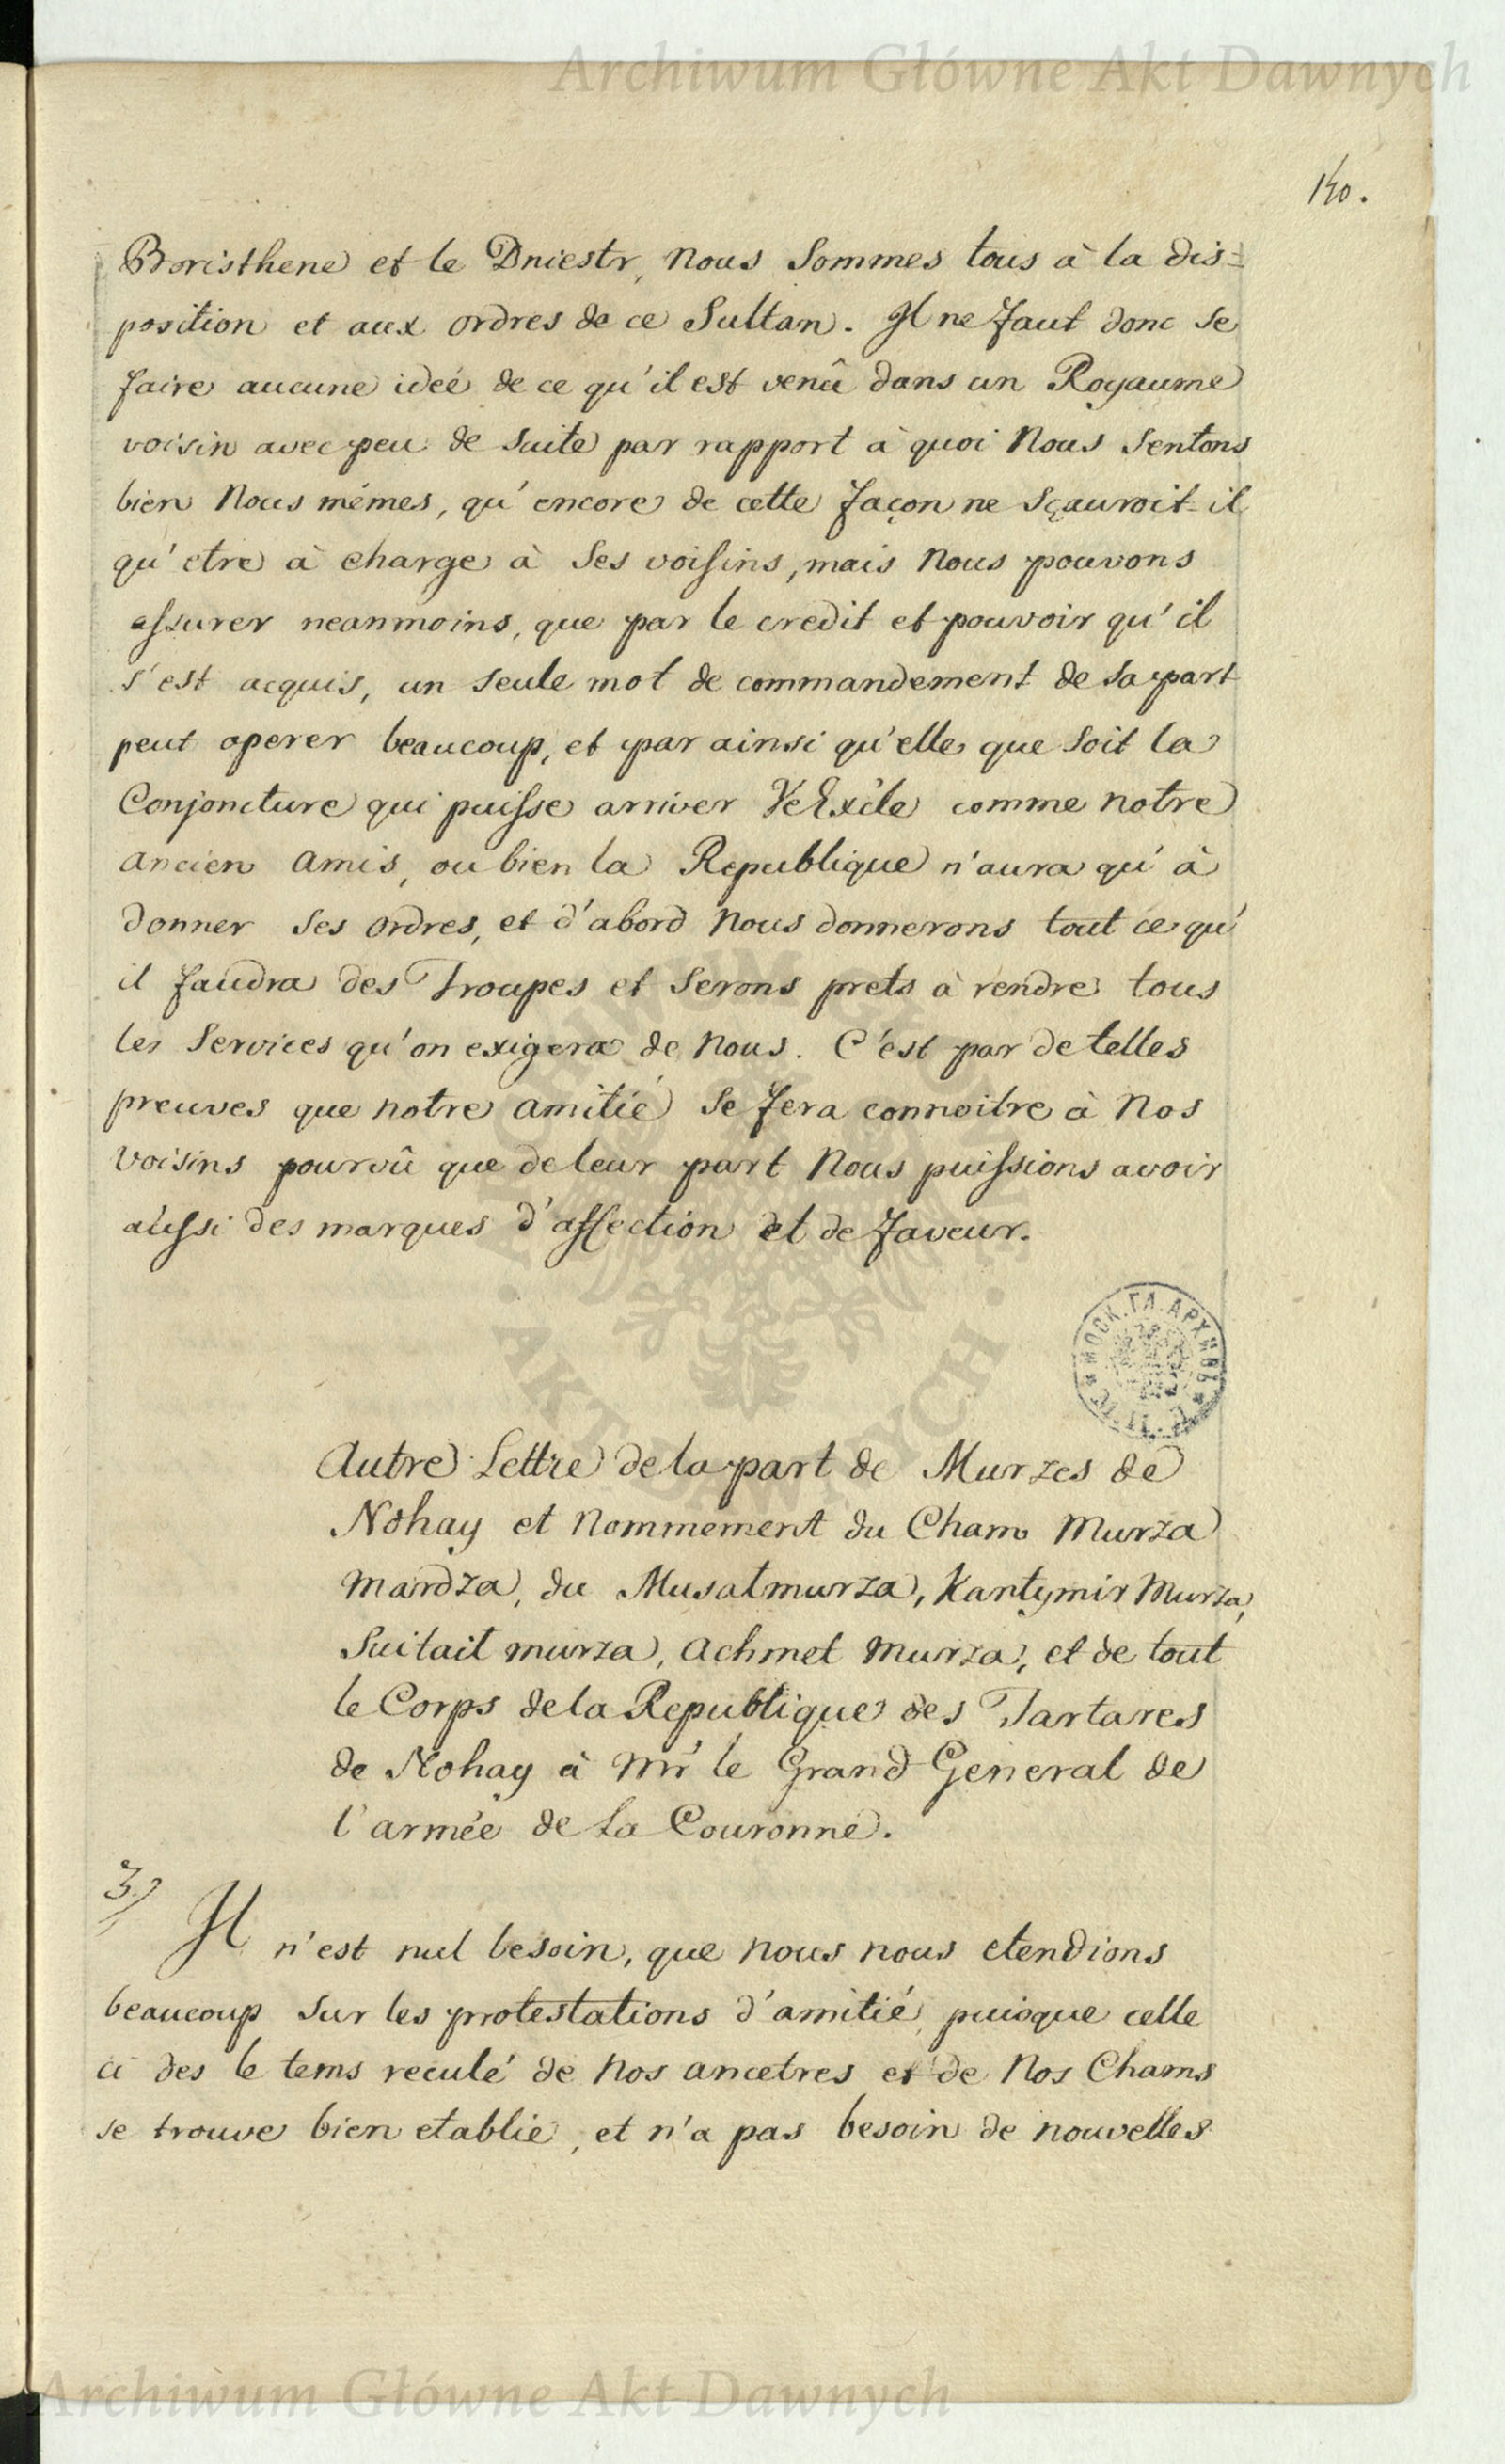 Archiwum Główne Akt Dawnych
140.
Boristhene et le Dniestr, Nous Sommes tous à la dis=
position et aux ordres de ce Sultan. Il ne faut donc se
faire aucune ideé de ce qu'il est venû dans un Royaume
voisin avec peu de suite par rapport à quoi Nous Sentons
bien Nous mémes, qu'encore de cette façon ne Sçauroit-il
qu'etre à charge à Ses voisins, mais Nous pouvons
assurer neanmoins, que par le credit et pouvoir qu'il
s'est acquis, un seule mot de commandement de sa part
peut operer beaucoup, et par ainsi qu'elle que soit la
Conjoncture qui puisse arriver VeExcle comme notre
ancien amis, ou bien la Republique n'aura qu'à
donner Ses ordres, et d'abord Nous donnerons tout ce qu'
il faudra des Troupes et Serons prets à rendre tous
les Services qu'on exigera de Nous. C'est par de telles
preuves que notre amitié Se fera connoitre à Nos
Voisins pourvû que de leur part Nous puissions avoir
aussi des marques d'affection et de faveur.
МОСК. ГЛ. АРХИВЪ
Autre Lettre de la part de Murzes de
Nohay et Nommement du Cham Murza
Mardza, du Musatmurza, Kantymir Murza,
Suitait murza, Achmet Murza, et de tout
le Corps de la Republique des Tartares
de Nohay à Mr le Grand General de
l'armée de la Couronne.
3)
Il n'est nul besoin, que nous nous etendions
beaucoup Sur les protestations d'amitié, puisque celle
ci des le tems reculé de Nos ancetres et de Nos Chams
se trouve bien etablie, et n'a pas besoin de nouvelles
Archiwum Główne Akt Dawnych